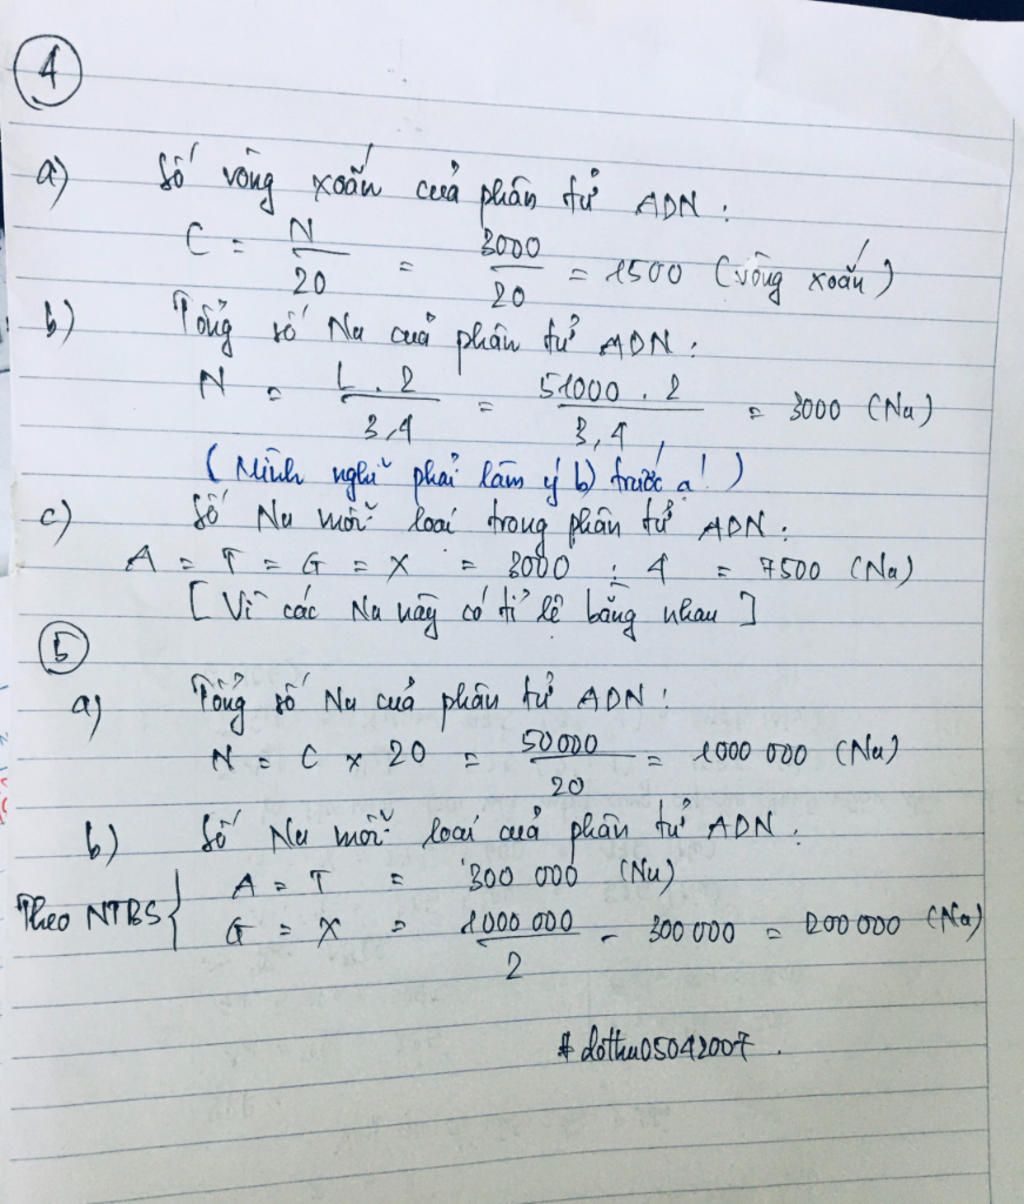 4
a) Số vòng xoắn của phân tử ADN :
C = N/20 = 3000/20 = 1500 (vòng xoắn)
b) Tổng số Nu của phân tử ADN :
N = L . 2/3,4 = 51000 . 2/3,4 = 3000 (Nu)
( Mình nghĩ phải làm ý b) trước ạ! )
c) Số Nu mỗi loại trong phân tử ADN :
A = T = G = X = 3000 : 4 = 7500 (Nu)
[ Vì các Nu này có tỉ lệ bằng nhau ]
5
a) Tổng số Nu của phân tử ADN :
N = C x 20 = 50000/20 = 1000 000 (Nu)
b) Số Nu mỗi loại của phân tử ADN .
Theo NTBS { A = T = 300 000 (Nu)
G = X = 1000 000/2 - 300 000 = 200 000 (Nu)
# dothu05042007 .